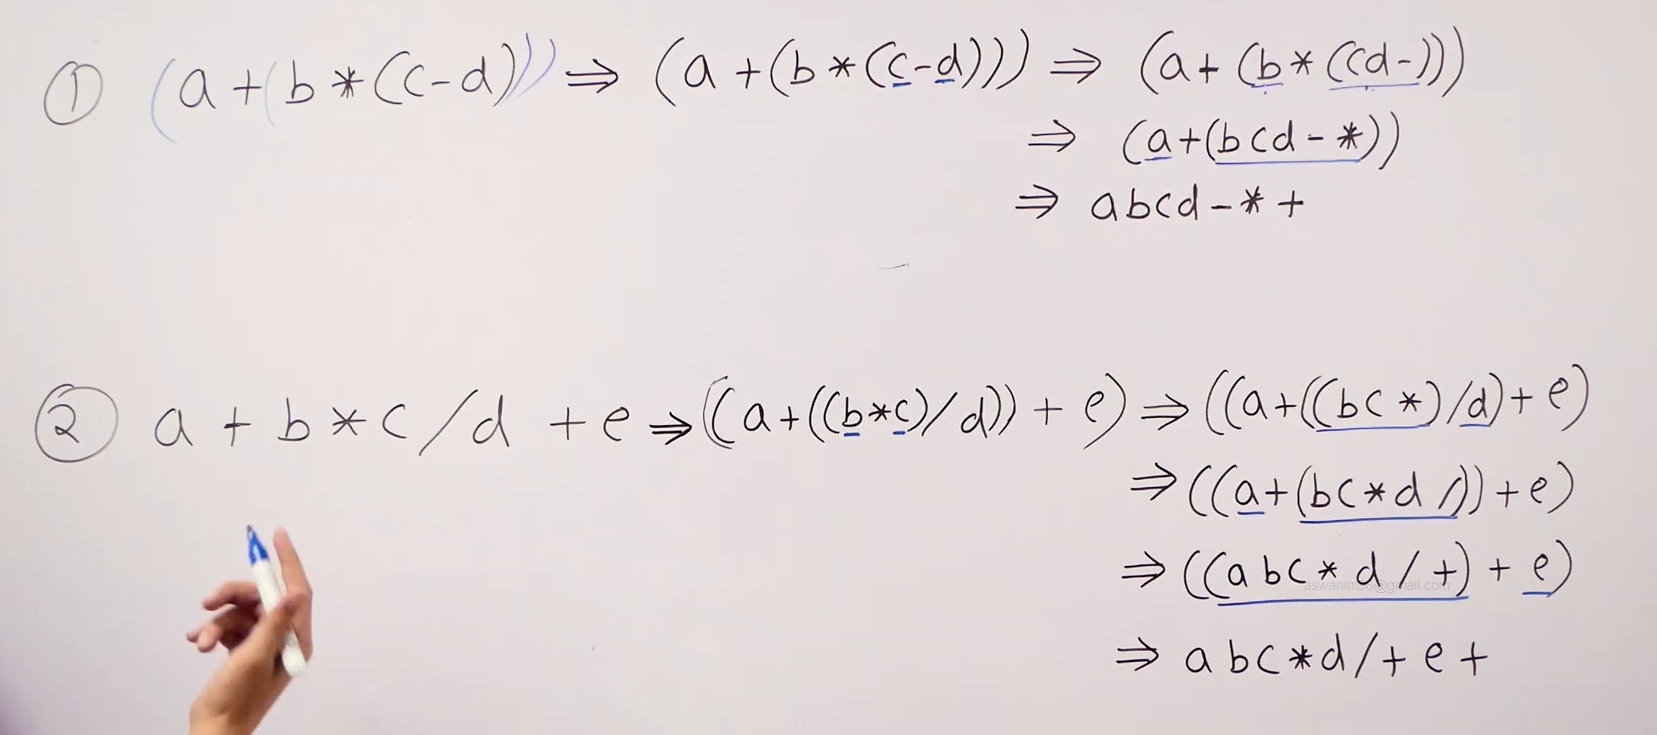 ① (a+(b*(c-d))) ⇒ (a+(b*(c-d))) ⇒ (a+(b*((cd-)))
⇒ (a+(bcd-*))
⇒ abcd-*+
② a+b*c/d+e ⇒ ((a+((b*c)/d))+e) ⇒ ((a+((bc*)/d)+e)
⇒ ((a+(bc*d/))+e)
⇒ ((abc*d/+)+e)
aswanim96@gmail.com
⇒ abc*d/+e+